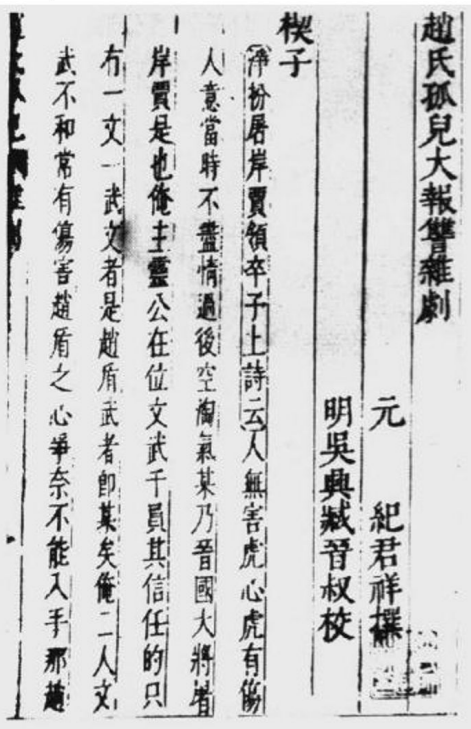 趙氏孤兒大報讐雜劇
元 紀君祥撰
明吳興臧晉叔校
楔子
(淨扮屠岸賈領卒子上詩云)人無害虎心虎有傷
人意當時不盡情過後空淘氣某乃晉國大將屠
岸賈是也俺主靈公在位文武千員其信任的只
有一文一武文者是趙盾武者即某矣俺二人文
武不和常有傷害趙盾之心爭奈不能入手那趙